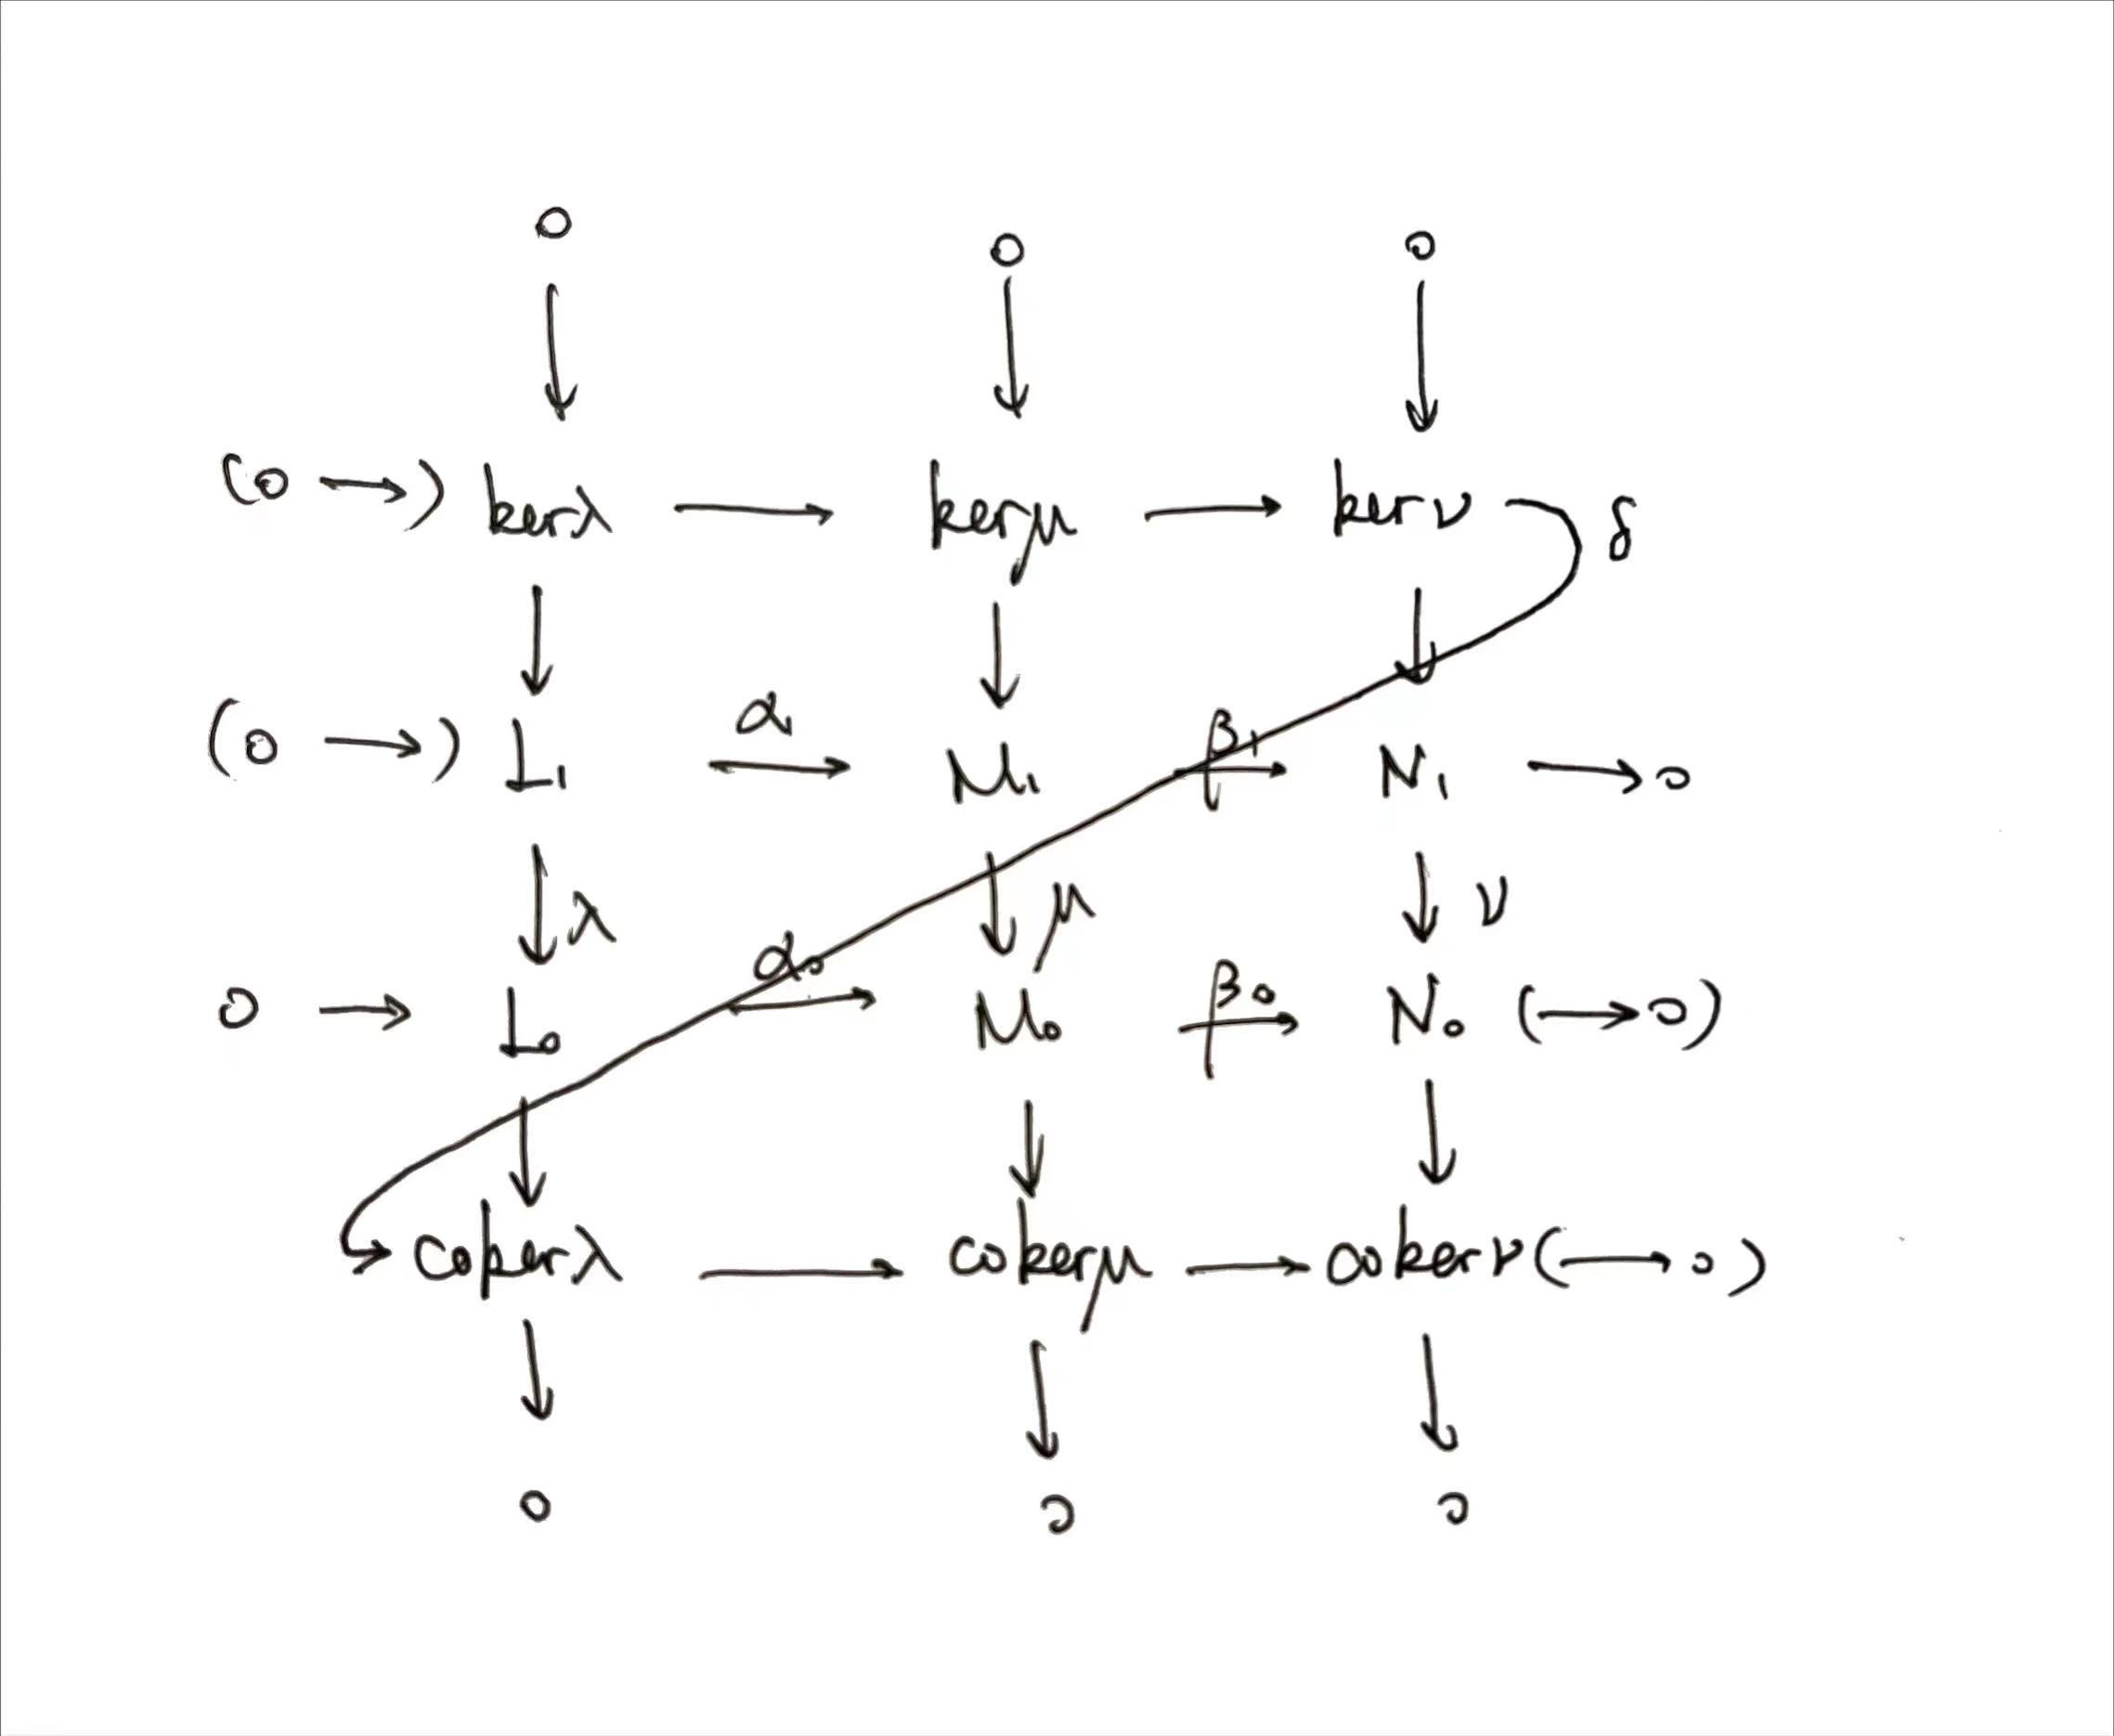 0 0 0
(0 →) ker λ → ker μ → ker ν δ
α₁ β₁
(0 →) L₁ → M₁ → N₁ → 0
λ μ ν
α₀ β₀
0 → L₀ → M₀ → N₀ (→ 0)
coker λ → coker μ → coker ν (→ 0)
0 0 0